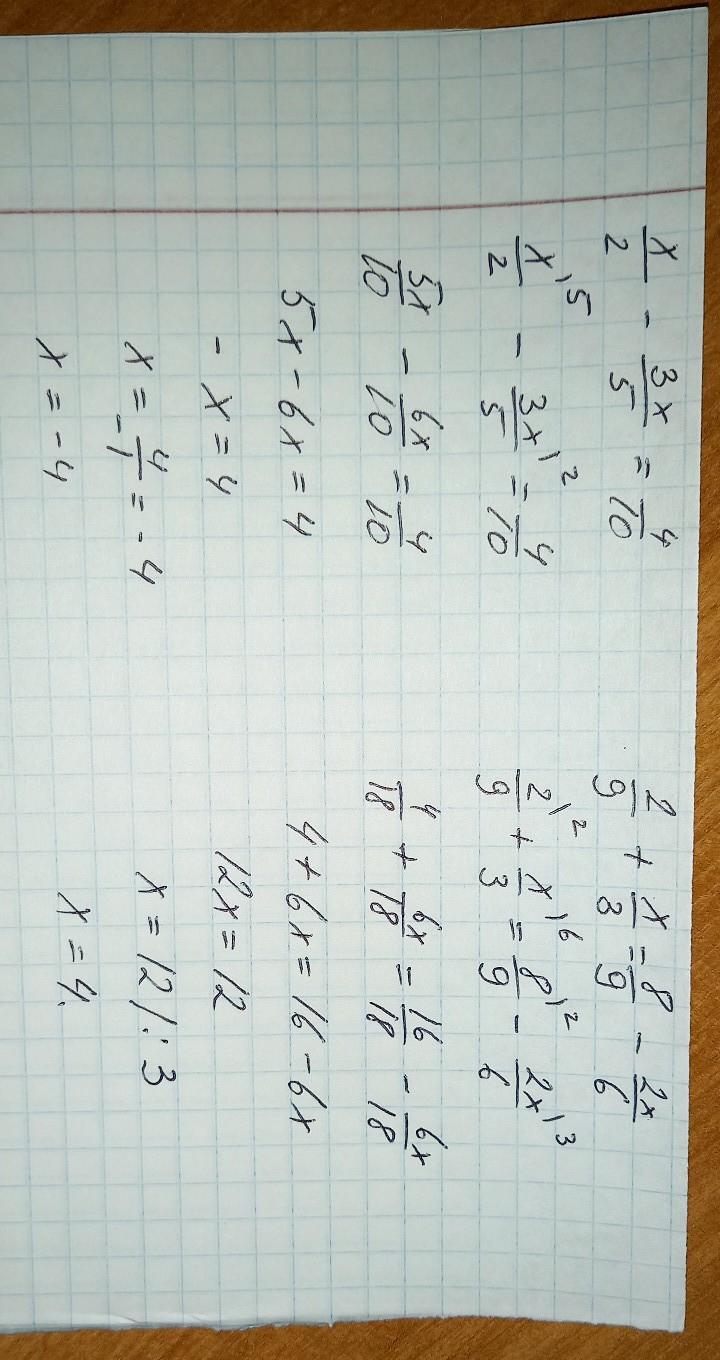 x/2 - 3x/5 = 4/10
x\5/2 - 3x\2/5 = 4/10
5x/10 - 6x/10 = 4/10
5x - 6x = 4
- x = 4
x = 4/-1 = - 4
x = - 4
2/9 + x/3 = 8/9 - 2x/6
2\2/9 + x\6/3 = 8\2/9 - 2x\3/6
4/18 + 6x/18 = 16/18 - 6x/18
4 + 6x = 16 - 6x
12x = 12
x = 12 / : 3
x = 4.